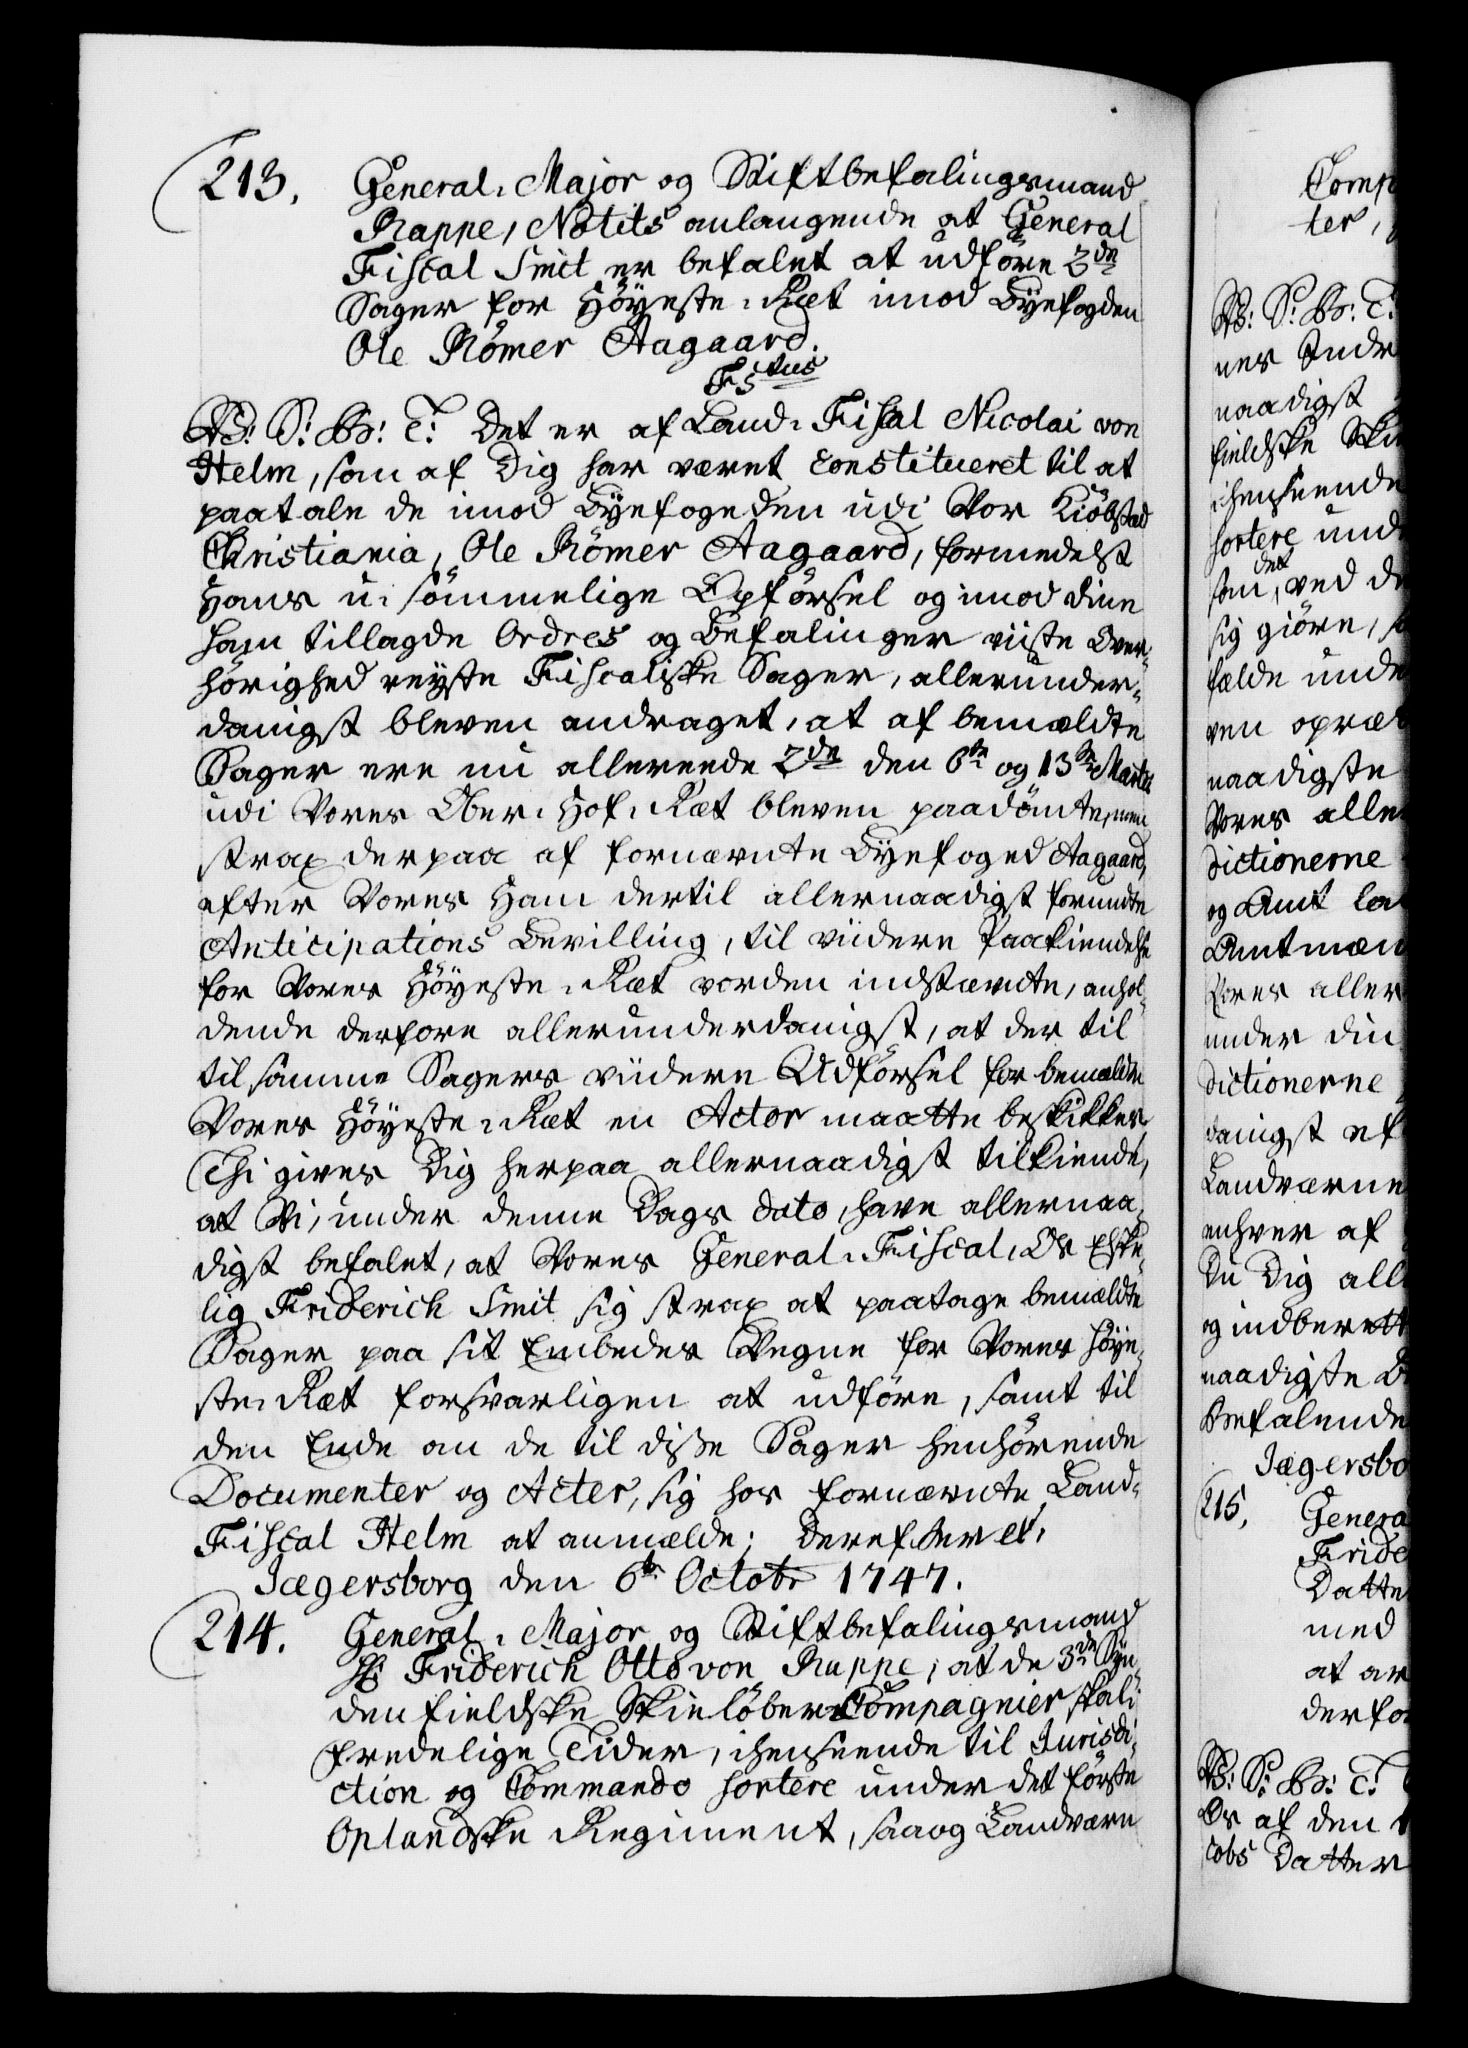 213. General-Major og Stiftbefalingsmand
Rappe, Notits anlangende at General
Fiscal Smit er befalet at udføre 2de
Sager for Høyeste-Ræt imod Byefogden
Ole Römer Aagaard.
F5tus
Det er af Land-Fiscal Nicolai von
Helm, som af Dig har været constitueret til at
paatale de imod Byefogeden udi Vor Kiöbsted
Christiania, Ole Römer Aagaard, formedelst
Hans u-sömmelige Opførsel og imod dine
ham tillagde Ordres og Befalinger viiste Over-
hørighed reyste Fiscaliske Sager, allerunder-
danigst bleven andraget, at af bemældte
Sager ere nu allereede 2de den 6te og 13de Martii
udi Vores Ober-Hof-Ræt bleven paadömte, men
strax derpaa af fornævnte Byefoged Aagaard,
efter Vores Ham dertil allernaadigst forundte
Anticipations Bevilling, til viidere Paakiendelse
for Vores Høyeste-Ræt vorden indstævnte, anhol-
dende derfore allerunderdanigst, at der til
til samme Sagers viidere Udførsel for bemældte
Vores Høyeste-Ræt en Actor maatte beskikkes
Thi gives Dig herpaa allernaadigst tilkiende,
at Vi, under denne Dags dato, have allernaa-
digst befalet, at Vores General-Fiscal, Os Elske-
lig Friderich Smit sig strax at paatage bemældte
Sager paa sit Embedes Vegne for Vores Høye-
ste-Ræt forsvarligen at udføre, samt til
den Ende om de til disse Sager henhørende
Documenter og Acter, sig hos fornævnte Land-
Fiscal Helm at anmælde; Derefter et.
Jægersborg den 6te Octobr 1747.
214. General-Major og Stiftbefalingsmand
Hr Friderich Otto von Rappe, at de 3de Syn
denfieldske Skieløber Compagnier skal i
fredelige Tider, i henseende til Jurisdi-
ction og Commando sortere under det første
Oplandske Regiment, saa og Landværn
Comp
ter,
nes Indr
naadigst
fieldske Ski
i henseende
sortere und
som det, ved de
sig giøre, s
fælde unde
ven opræt
naadigste
Vores aller
dictionerne
og Amt la
Amtmæn
Vores aller
under din
dictionerne
danigst ef
Landværne
enhver af
Du Dig all
og indberett
naadigste B
Befalende
Jægersbo
215. Genera
Fride
Datte
med
at ar
derfor
Os af den
cobs Datter